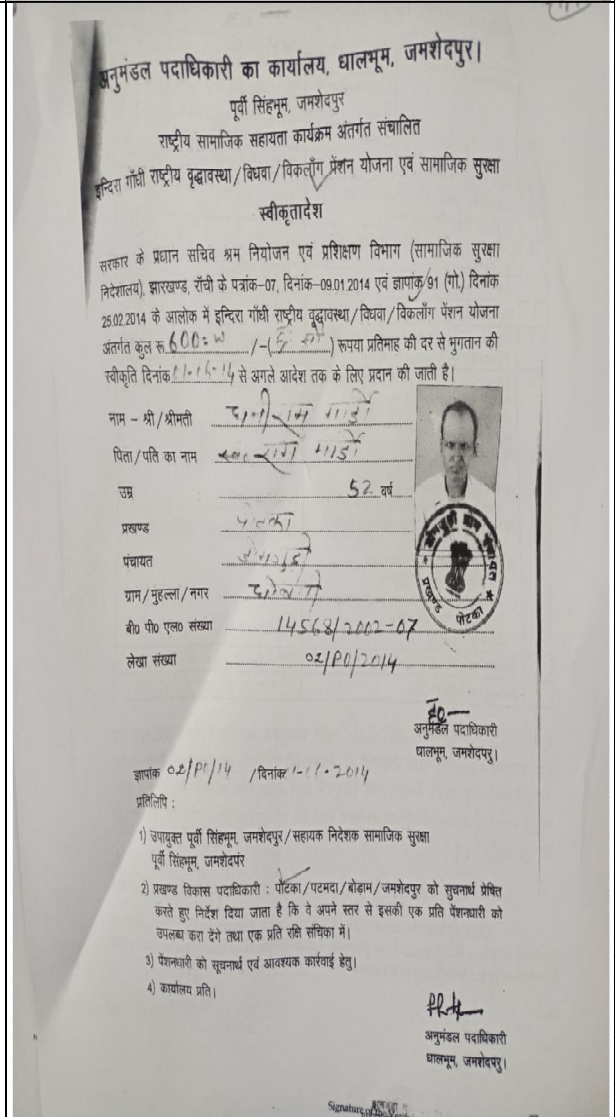 अनुमंडल पदाधिकारी का कार्यालय, धालभूम, जमशेदपुर।
पूर्वी सिंहभूम, जमशेदपुर
राष्ट्रीय सामाजिक सहायता कार्यक्रम अंतर्गत संचालित
इन्दिरा गाँधी राष्ट्रीय वृद्धावस्था/विधवा/विकलाँग पेंशन योजना एवं सामाजिक सुरक्षा
स्वीकृतादेश
सरकार के प्रधान सचिव श्रम नियोजन एवं प्रशिक्षण विभाग (सामाजिक सुरक्षा
निदेशालय), झारखण्ड, राँची के पत्रांक-07, दिनांक-09.01.2014 एवं ज्ञापांक/91 (गो.) दिनांक
25.02.2014 के आलोक में इन्दिरा गाँधी राष्ट्रीय वृद्धावस्था/विधवा/विकलाँग पेंशन योजना
अंतर्गत कुल रू 600 /-( ) रूपया प्रतिमाह की दर से भुगतान की
स्वीकृति दिनांक से अगले आदेश तक के लिए प्रदान की जाती है।
नाम - श्री/श्रीमती
पिता/पति का नाम
उम्र 52 वर्ष
प्रखण्ड पोटका
पंचायत
ग्राम/मुहल्ला/नगर
बी० पी० एल० संख्या 14568/2002-07
लेखा संख्या 02/PO/2014
प्रखण्ड पोटका
अनुमंडल पदाधिकारी
धालभूम, जमशेदपुर।
ज्ञापांक 02/PO/14 /दिनांक 2014
प्रतिलिपि :
1) उपायुक्त पूर्वी सिंहभूम, जमशेदपुर/सहायक निदेशक सामाजिक सुरक्षा
पूर्वी सिंहभूम, जमशेदपुर
2) प्रखण्ड विकास पदाधिकारी : पोटका/पटमदा/बोड़ाम/जमशेदपुर को सुचनार्थ प्रेषित
करते हुए निर्देश दिया जाता है कि वे अपने स्तर से इसकी एक प्रति पेंशनधारी को
उपलब्ध करा देंगे तथा एक प्रति रक्षि संचिका में।
3) पेंशनधारी को सूचनार्थ एवं आवश्यक कार्रवाई हेतु।
4) कार्यालय प्रति।
अनुमंडल पदाधिकारी
धालभूम, जमशेदपुर।
Signature of the